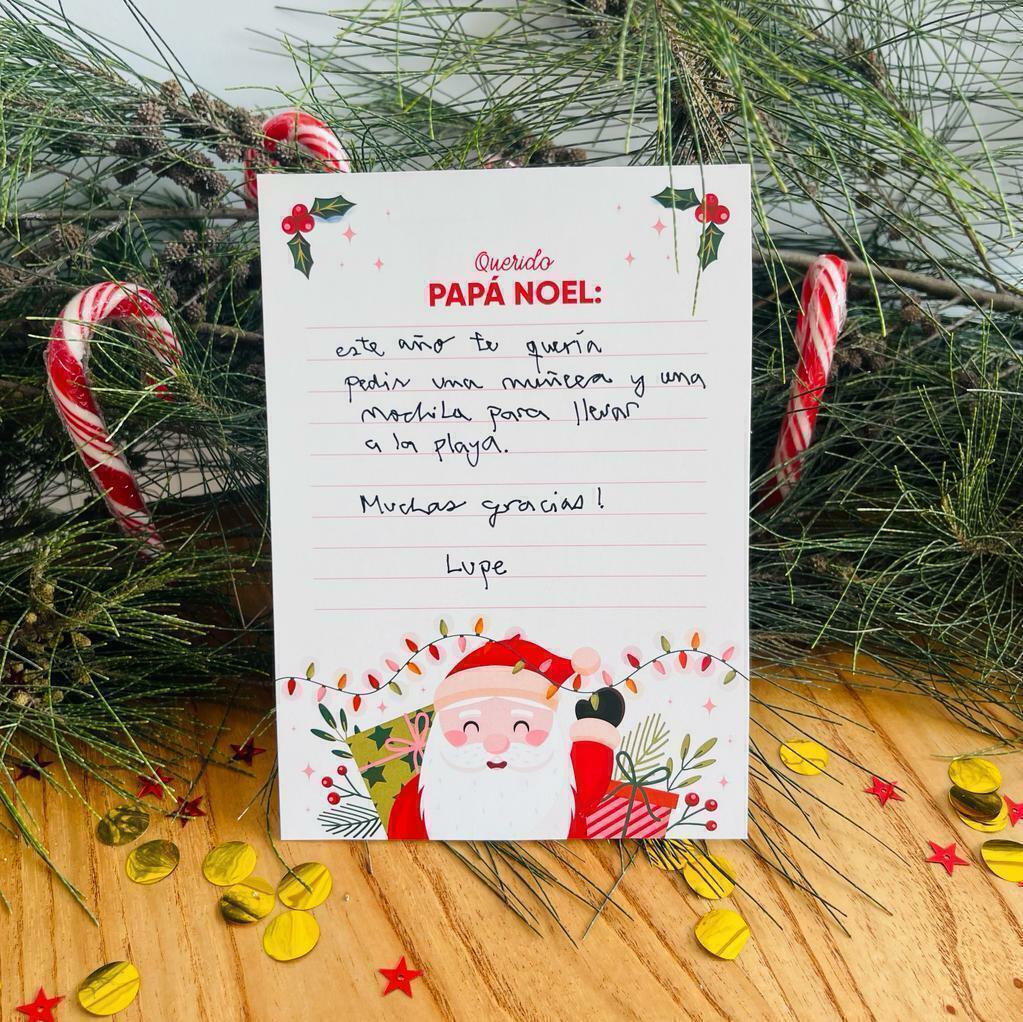 Querido
PAPÁ NOEL:
este año te quería
pedir una muñeca y una
mochila para llevar
a la playa.
Muchas gracias!
Lupe